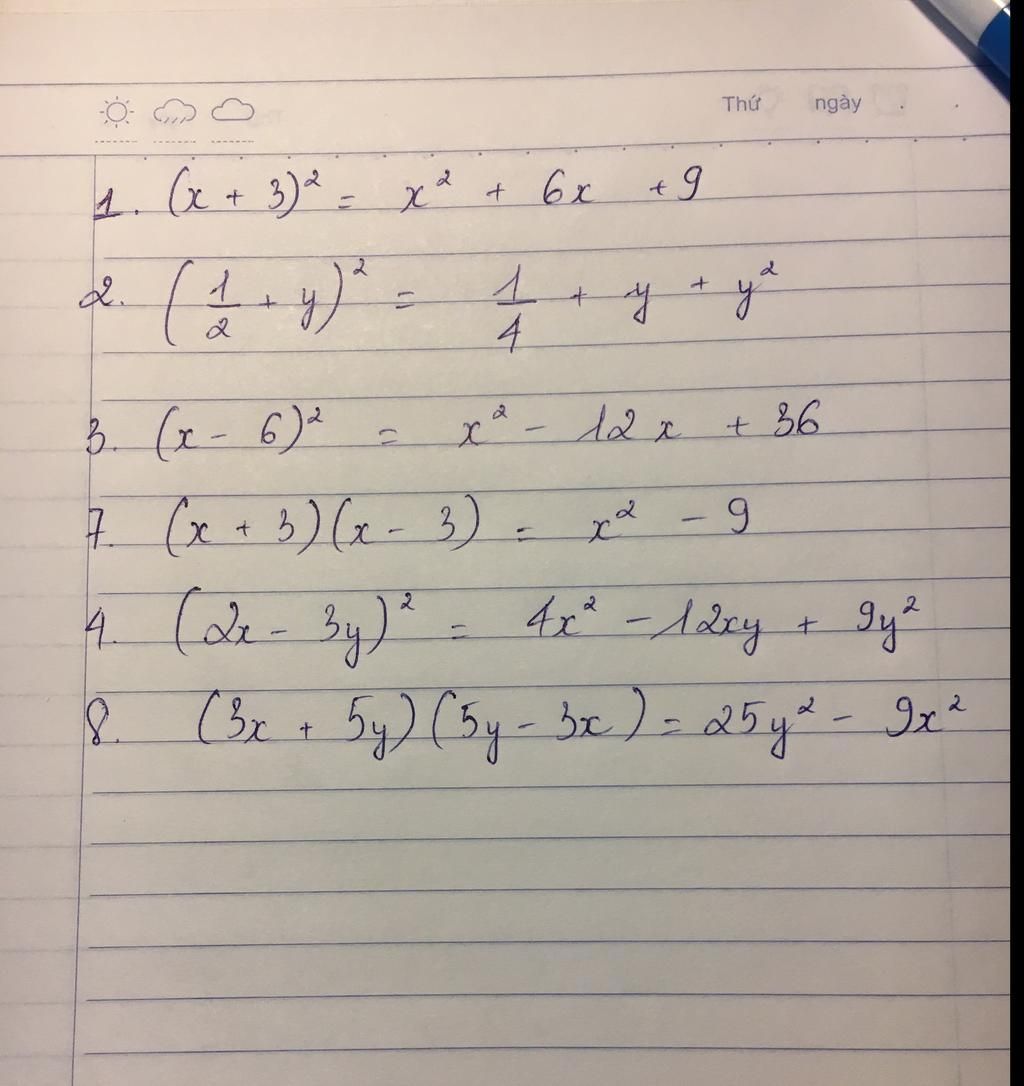 Thứ ngày
1. (x + 3)² = x² + 6x + 9
2. (1/2 + y)² = 1/4 + y + y²
3. (x - 6)² = x² - 12x + 36
7. (x + 3)(x - 3) = x² - 9
4. (2x - 3y)² = 4x² - 12xy + 9y²
8. (3x + 5y)(5y - 3x) = 25y² - 9x²